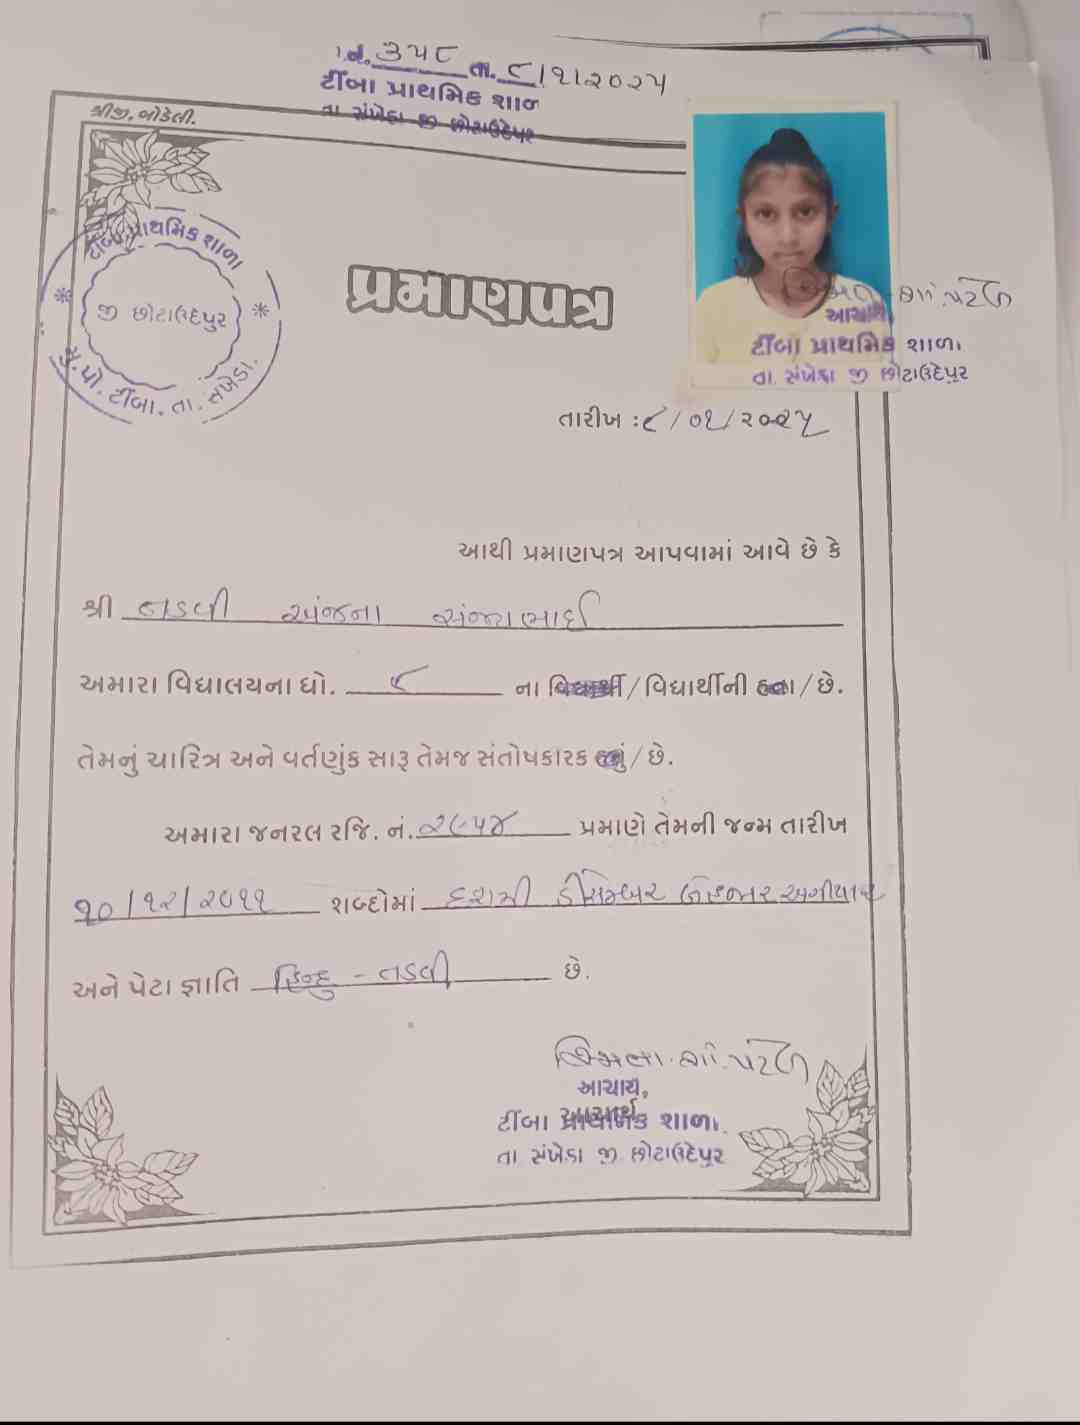 નં. ૩૫૮ તા. ૮/૧/૨૦૨૫
ટીંબા પ્રાથમિક શાળ
તા સંખેડા જી છોટાઉદેપુર
શ્રીજી, બોડેલી.
ટીંબા પ્રાથમિક શાળા
જી છોટાઉદેપુર
મુ. પો. ટીંબા. તા. સંખેડા.
પ્રમાણપત્ર
આચાર્ય,
ટીંબા પ્રાથમિક શાળા
તા સંખેડા જી છોટાઉદેપુર
તારીખ : ૮/૦૧/૨૦૨૫
આથી પ્રમાણપત્ર આપવામાં આવે છે કે
શ્રી તડવી અંજના સંજયભાઈ
અમારા વિદ્યાલયના ધો. ૮ ના વિદ્યાર્થી / વિદ્યાર્થીની હતા / છે.
તેમનું ચારિત્ર અને વર્તણુંક સારૂ તેમજ સંતોષકારક હતું / છે.
અમારા જનરલ રજિ. નં. ૨૯૫૪ પ્રમાણે તેમની જન્મ તારીખ
૧૦/૧૨/૨૦૧૧ શબ્દોમાં દશમી ડીસેમ્બર બેહજાર અગીયાર
અને પેટા જ્ઞાતિ હિન્દુ - તડવી છે.
આચાર્ય,
આચાર્ય
ટીંબા પ્રાથમિક શાળા
તા સંખેડા જી છોટાઉદેપુર